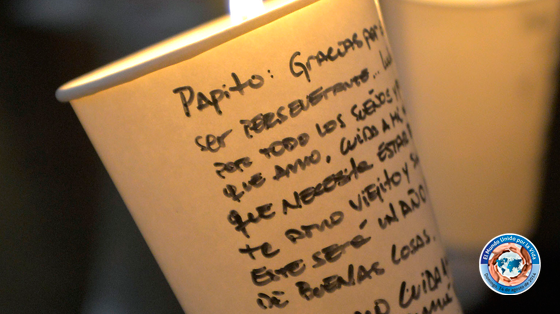 Papito: Gracias por
ser perseverante... la
por todo los sueños y
que amo. Cuida a mi
que necesita estar
te amo viejito y s
Este será un año
de buenas cosas.
Cuida
El Mundo Unido por la Vida